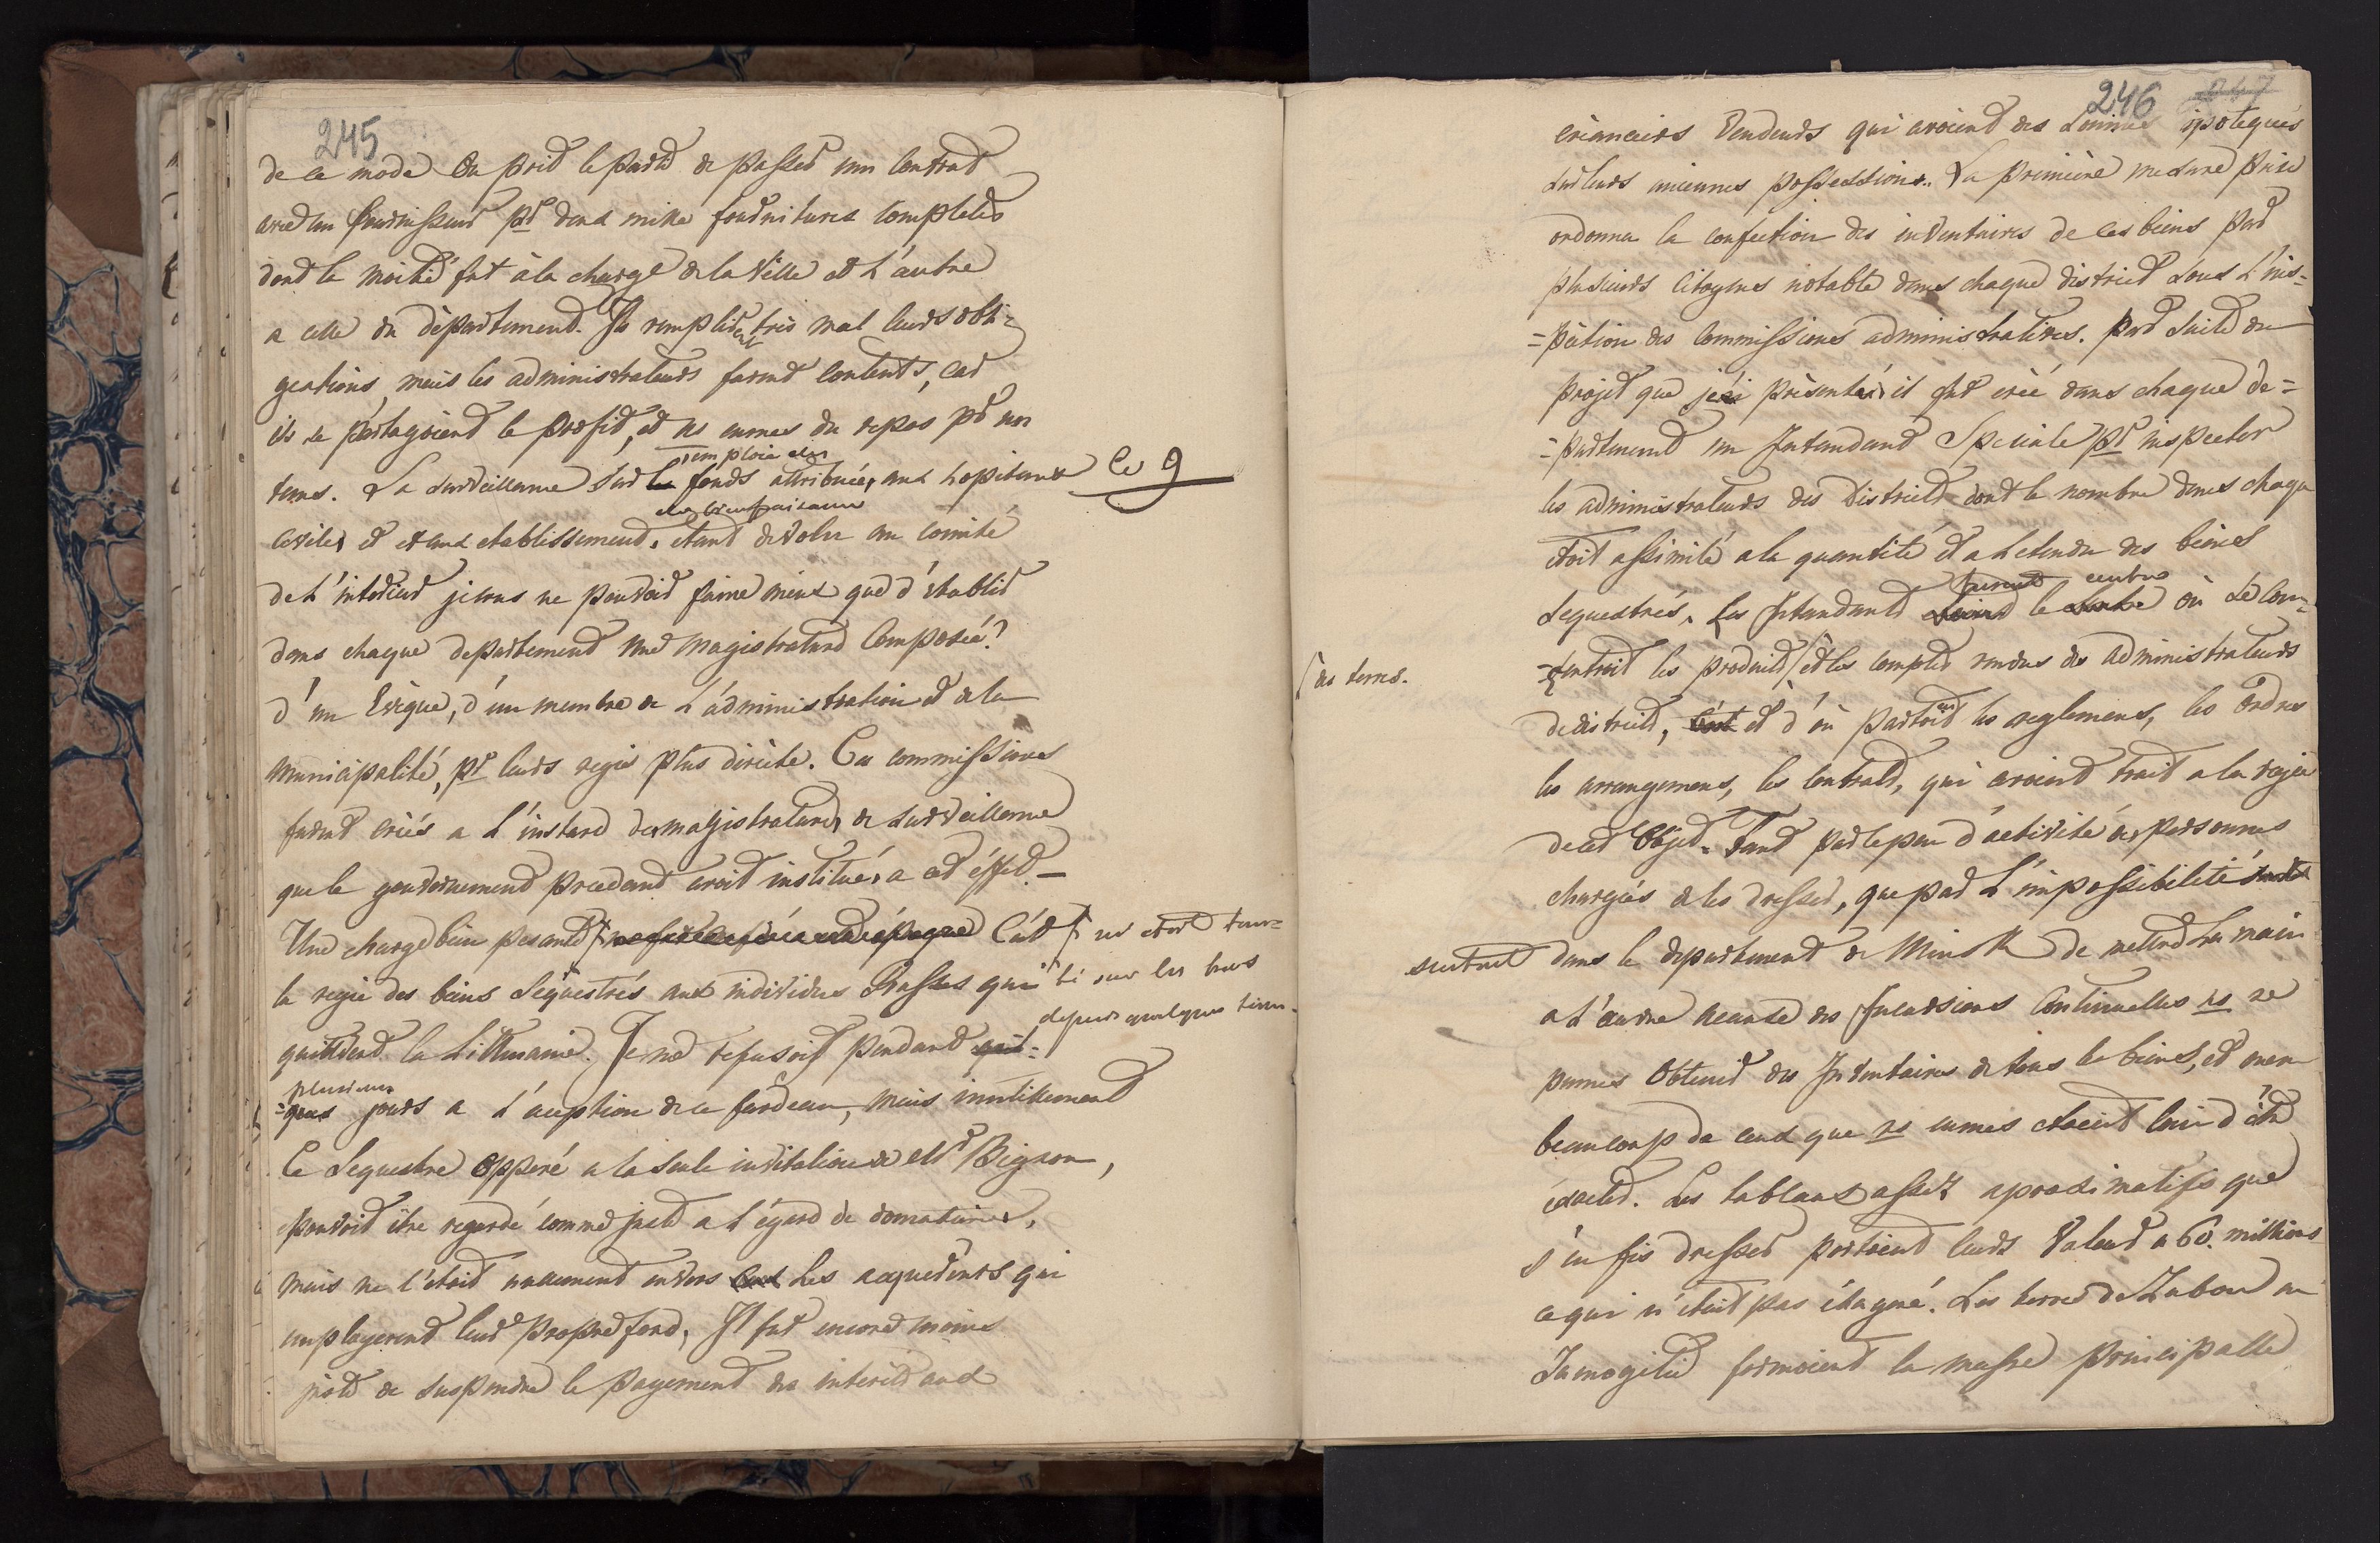 245
de ce mode On prit le parti de passer un Contrat
avec un fournisseur pr deux mille fournitures completes
dont la moitié fut à la charge de la Ville et l'autre
a celle du département. Ils remplirent très mal leurs obli-
gations, mais les administrateurs furent contents, car
ils se partagoient le profit, et ns eumes du repos pr un
l'emploie des
tems. La surveillance sur les fonds attribués aux hopitaux Ce 9
de bienfaisance
civiles et et aux etablissement, etant devolue au comité
de l'interieur je crus ne pouvoir faire mieux que d'établir
dans chaque departement une Magistrature Composée
d'un Evêque, d'un membre de l'administration et de la
Municipalité, pr leurs regie plus dirècte. Ces commissions
furent criés a l'instard des magistratures de surveillance
que le gouvernement precedent avoit institués a cet éffet —
Une charge bien pesante C'ét ns etoit tom-
la regie des biens Séquestrés aux individus Russes qui bé sur les bras
depuis quelques tems.
quittèrent la Lithuanie. Je me refusoit pendant quel-
plusieurs
=ques jours a l'aception de ce fardeau, mais inutilement
Ce Sequestre opperé a la seule invitation de Mr Bignon,
pouvoit être regardé comme juste a l'égard de donataires,
mais ne l'étoit nullement envers ceux les acquereurs qui
employerent leur propre fond, Il fut encore moins
juste de suspendre le payement des interêts aux
246 247
créanciers Vendeurs qui avoient des Sommes ipotequés
sur leurs anciennes possessions. La première mesure prise
ordonna la confection des inventaires de ces biens par
plusieurs Citoyens notable dans chaque district sous l'ins-
=pèction des Commissions administratives. Par suite du
projet que j'ai présenté, il fut créé dans chaque de=
=partement un Intendant Speciale pr inspecter
les administrateurs des Districts dont le nombre dans chaque
étoit assimilé a la quantité et a l'etendu des biens
furent centre
Sequestrés. Les Intendants le centre où se con-
=centroit les produits et les comptes rendus des administrateurs
des terres.
de districts, et d'où partoient les reglemens, les ordres
les arrangemens, les Contrats, qui avoient trait a la regie
de cet Objet. Tant par le peu d'activité des personnes
chargées de les dresser, que par l'impossibilité
surtout dans le departement de Minsk de mettre la main
a l'œuvre acause des Incursions Continuelles ns ne
pumes obtenir des Inventaires de tous les biens, et meme
beaucoup de ceux que ns eumes etoient loin d'être
exactes. Les tableaux assez aproximatifs que
j'en fis dresser portoient leurs Valeur a 60. millions
ce qui n'étoit pas éxageré. Les terres de Zubow en
Samogitie formoient la masse principalle